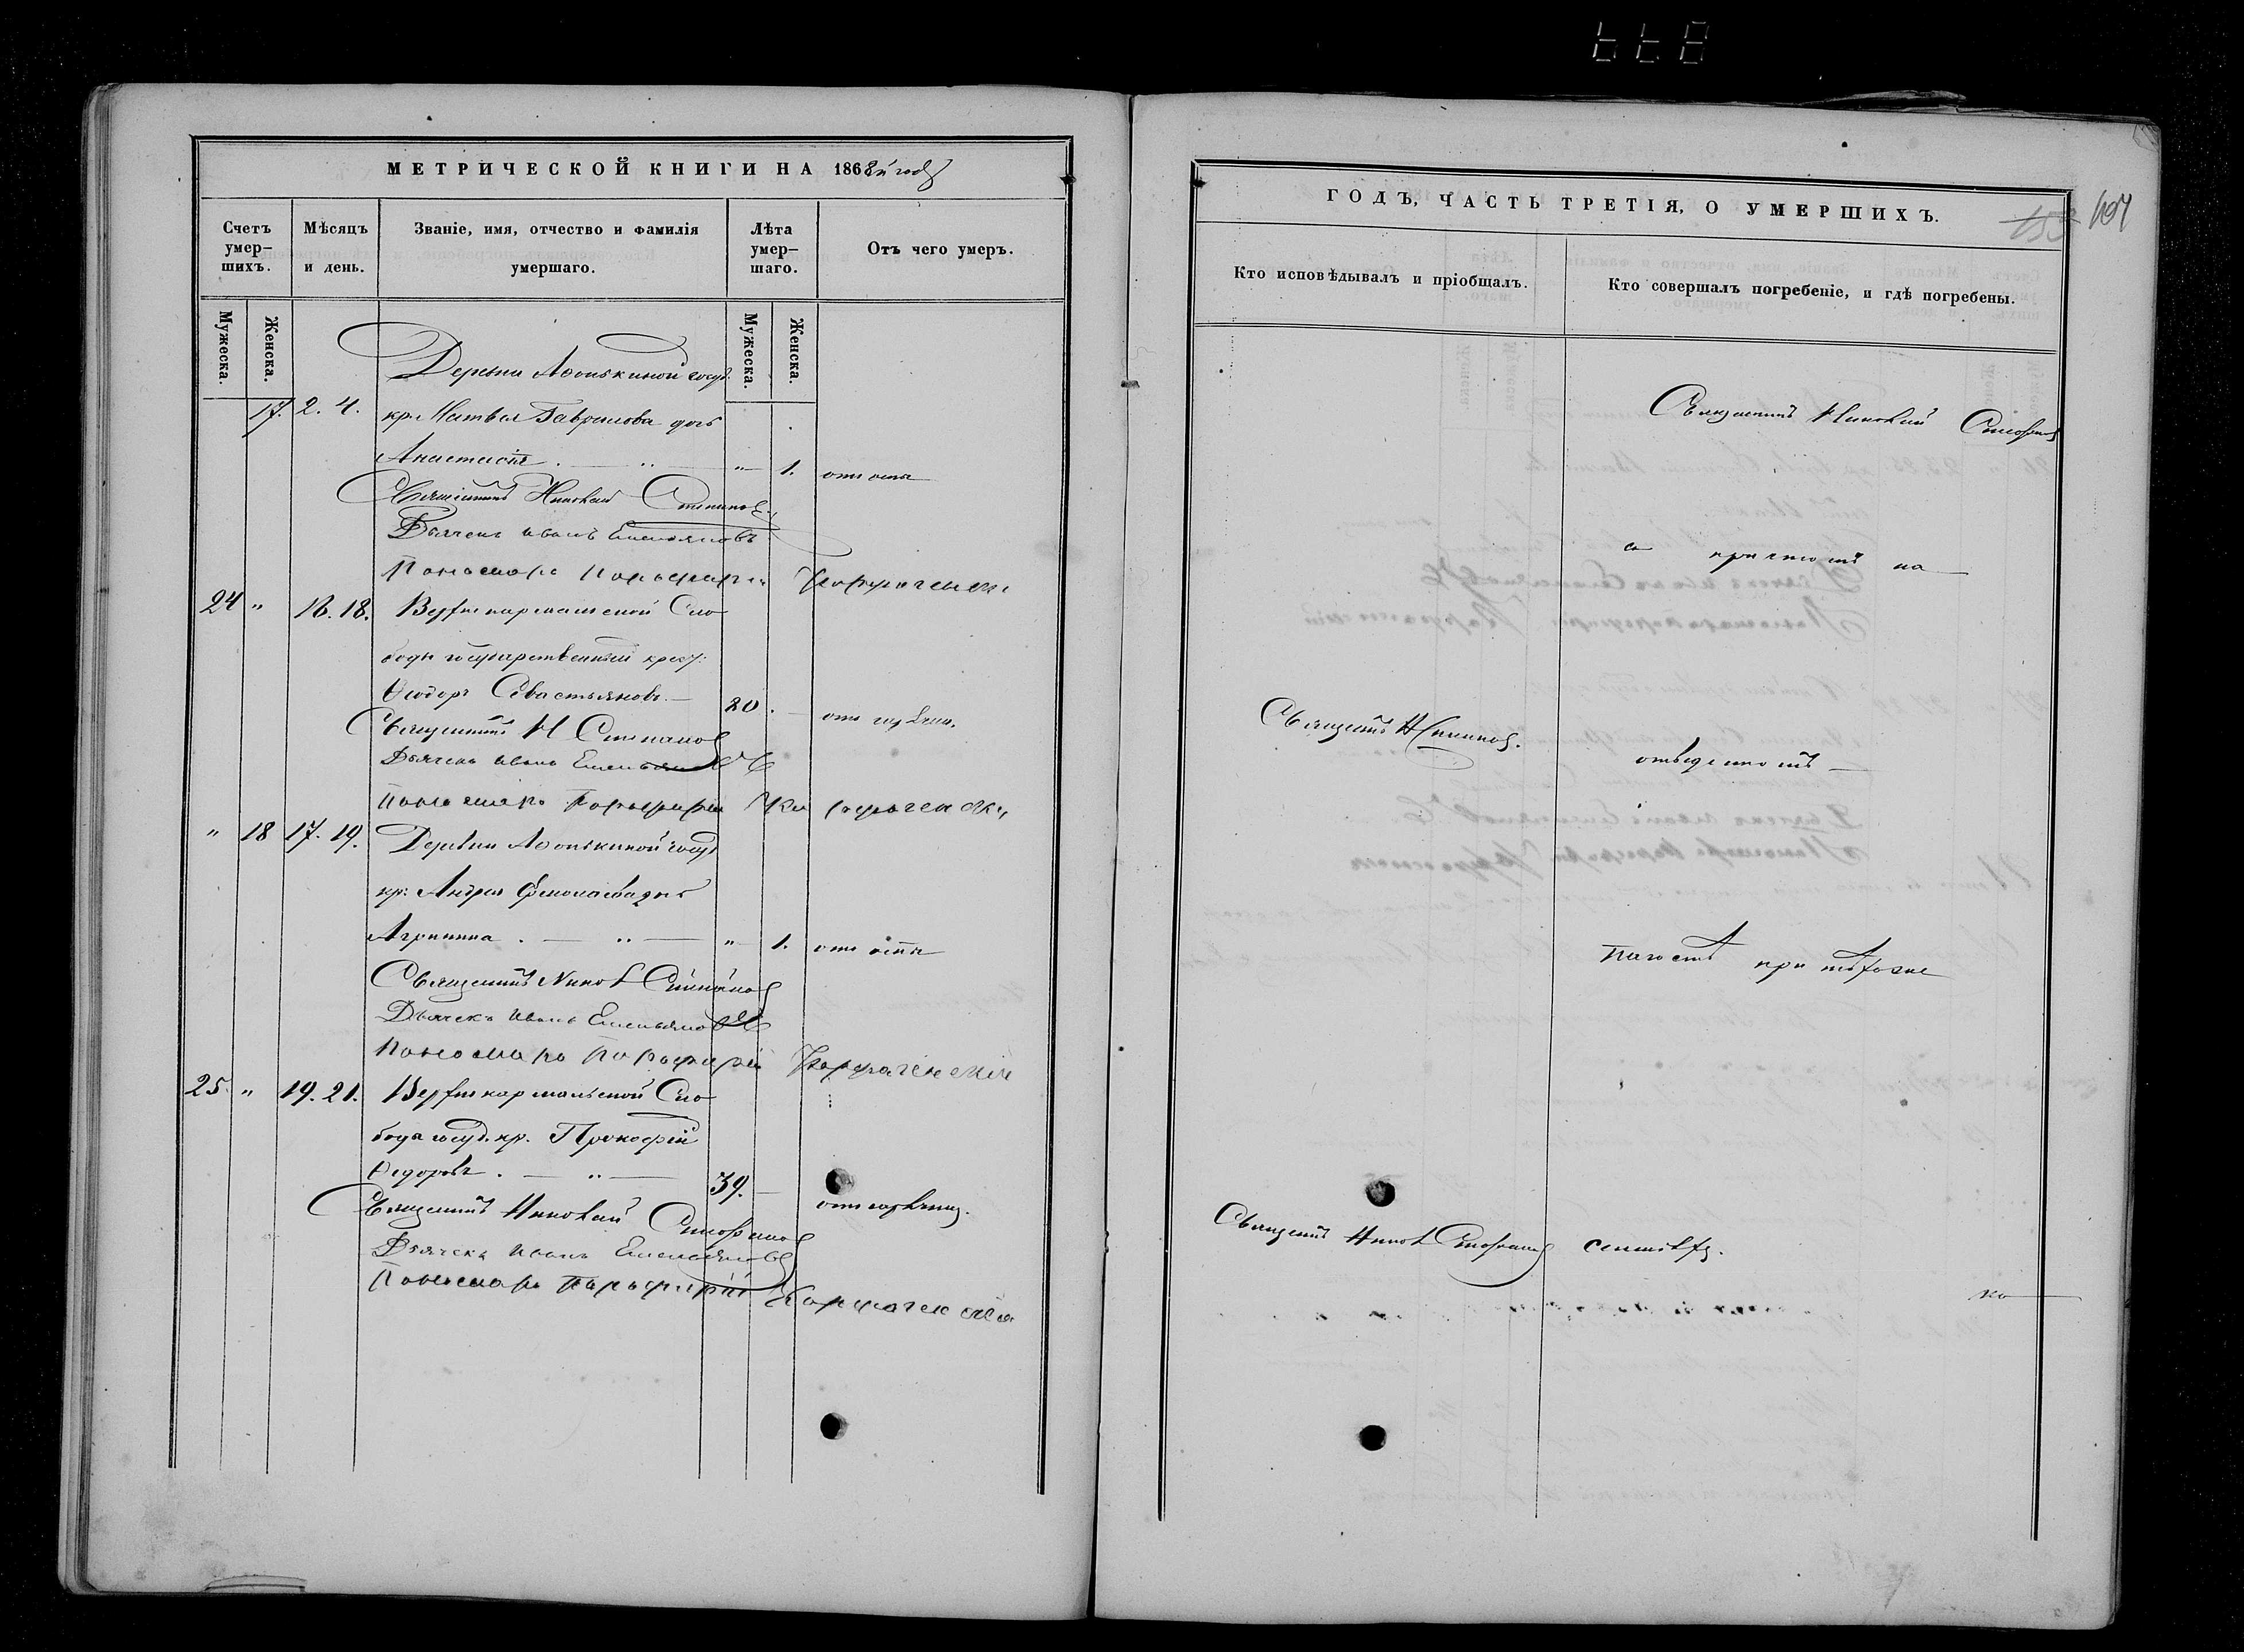 МЕТРИЧЕСКОЙ КНИГИ НА 1868й годъ
Счетъ умер-шихъ.
Мѣсяцъ и день.
Званіе, имя, отчество и фамилія умершаго.
Лѣта умер-шаго.
Отъ чего умеръ.
Мужеска.
Женска.
Мужеска.
Женска.
Деревни Афонькиной госуд.
17. 2. 4. кр. Матвѣя Гаврилова дочь
Анастасія " 1. отъ оспы
Священникъ Николай Степановъ
Дьячекъ Иванъ Емельяновъ
Пономарь Порфирій
24 " 16. 18. Верхнекармальской Сло
боды государственный крест:
Ѳеодоръ Севастьяновъ 80. отъ горячки.
Священникъ Н Степановъ
Дьячекъ Иванъ Емельяновъ
Пономарь Порфирій
" 18 17. 19. Деревни Афонькиной госуд
кр: Андрея дочь
Агрипина " 1. отъ оспы
Священникъ Никол Степановъ
Дьячекъ Иванъ Емельяновъ
Пономарь Порфирій
25. " 19. 21. Верхнекармальской Сло
бода госуд. кр. Прокофій
Ѳедоровъ 39. отъ горячки.
Священникъ Николай Степановъ
Дьячекъ Иванъ Емельяновъ
Пономарь Порфирій
ГОДЪ, ЧАСТЬ ТРЕТІЯ, О УМЕРШИХЪ.
Кто исповѣдывалъ и пріобщалъ.
Кто совершалъ погребеніе, и гдѣ погребены.
Священникъ Николай Степановъ
съ причтомъ на
Священникъ Н Степановъ.
отведенномъ
погостѣ
Священникъ Никол Степановъ